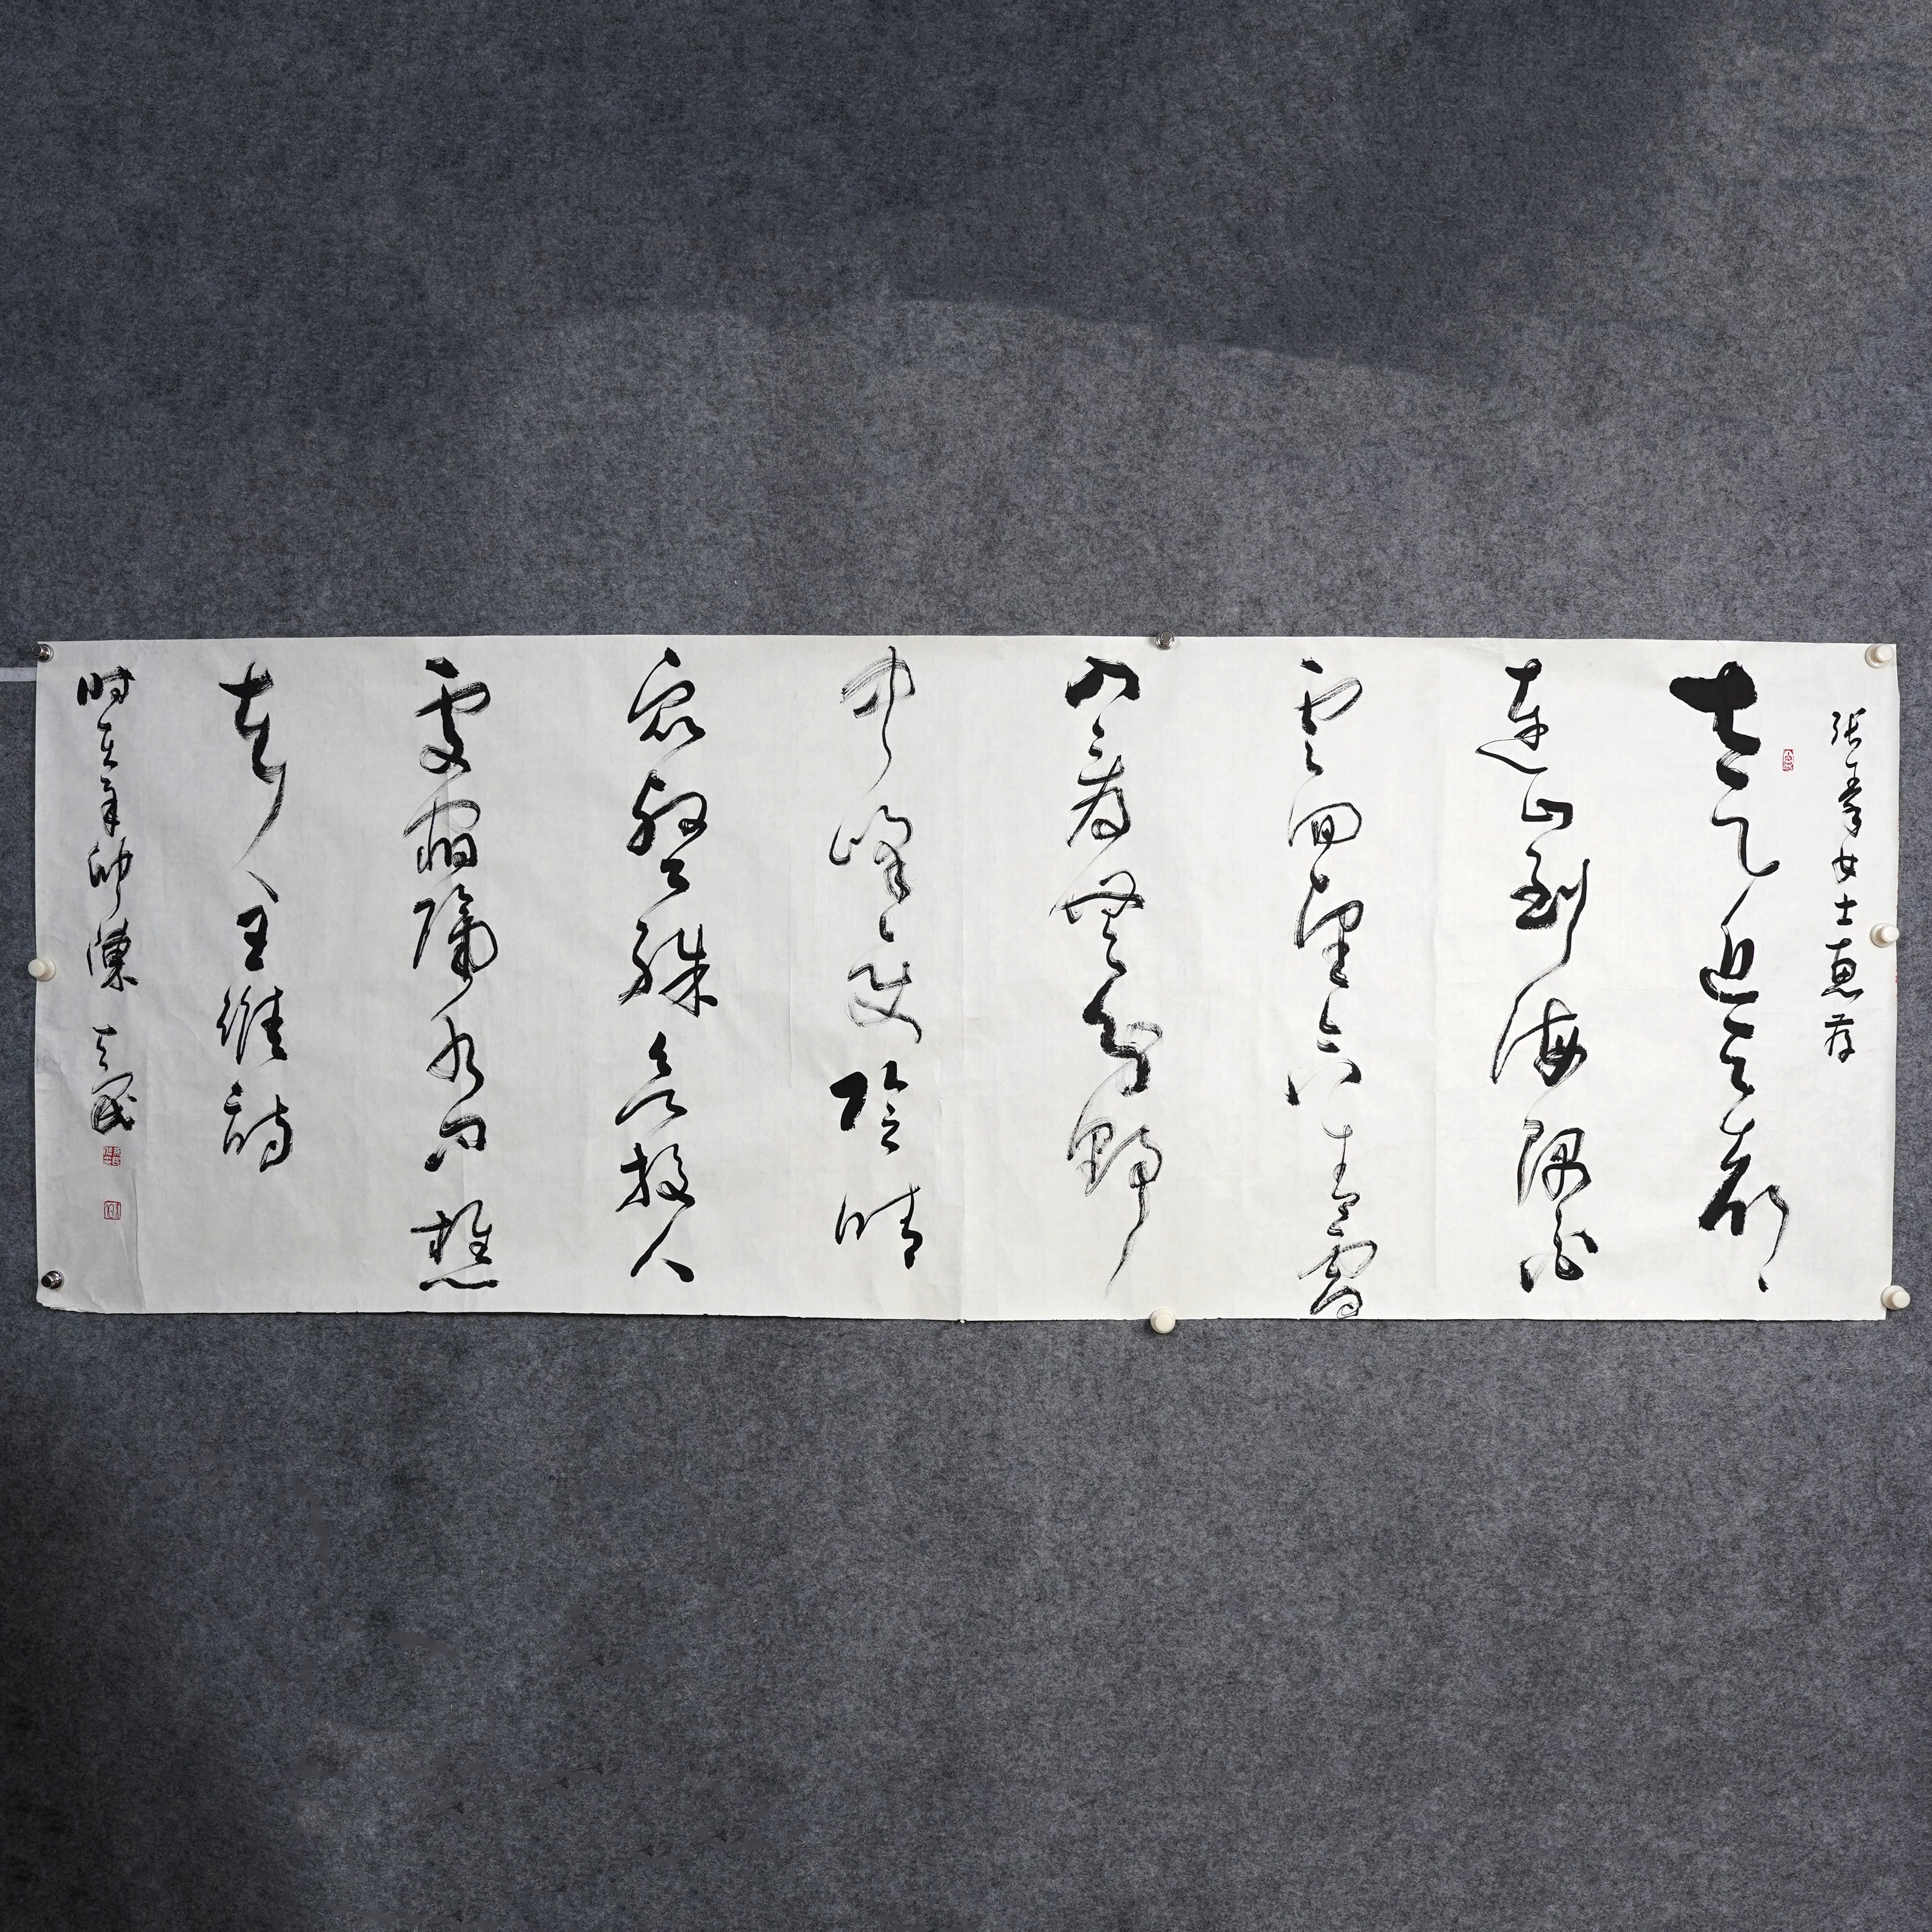 张 女士惠存
太乙近天都
連山到海隅白
雲回望合青靄
入看無分野
中峰變陰晴
衆壑殊欲投人
處宿隔水問樵
夫 王維詩
时在辛卯 陳